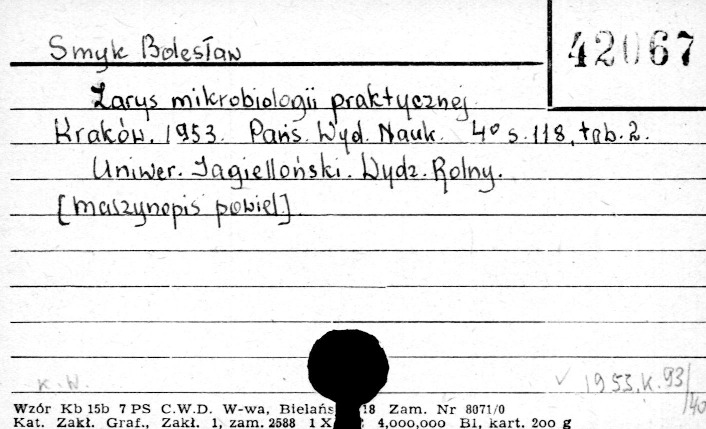 Smyk Bolesław
42067
Zarys mikrobiologii praktycznej.
Kraków. 1953. Pańs. Wyd. Nauk. 4° s. 118, tab. 2.
Uniwer. Jagielloński. Wydz. Rolny.
[maszynopis powiel].
K. W.
✓ 1953.K.93/40
Wzór Kb 15b 7 PS C.W.D. W-wa, Bielańs 18 Zam. Nr 8071/0
Kat. Zakł. Graf., Zakł. 1, zam. 2588 1 X 4,000,000 Bl, kart. 200 g